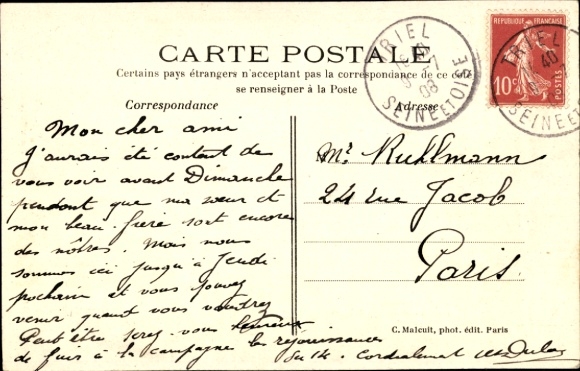 CARTE POSTALE
Certains pays étrangers n'acceptant pas la correspondance de ce côté
se renseigner à la Poste
Correspondance
Adresse
Mon cher ami
J'aurais été content de
vous voir avant Dimanche
pendant que ma sœur et
mon beau-frère sont encore
des nôtres. Mais nous
sommes ici jusqu'à Jeudi
prochain et vous pouvez
venir quand vous voudrez
Peut être serez-vous heureux
de fuir à la campagne les réjouissances
du 14. Cordialement
Mr. Ruhlmann
24 rue Jacob
Paris.
C. Malcuit, phot. édit. Paris
TRIEL
08
SEINE ET OISE
REPUBLIQUE FRANÇAISE
10c
POSTES
TRIEL
40
SEINE ET